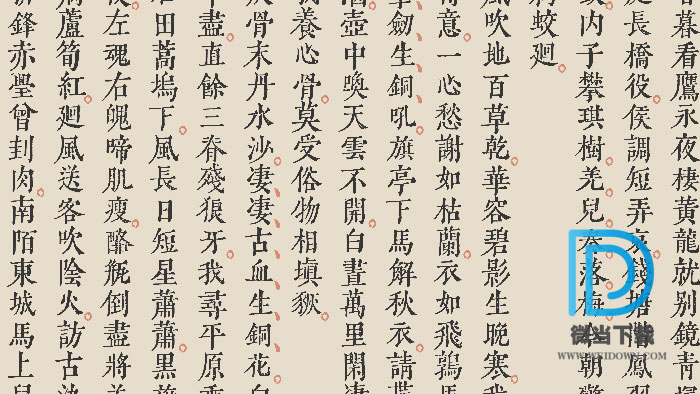 暮看鷹永夜棲黃龍就别鏡青
長橋役。侯調短弄哀。錢塘階鳳羽
內子攀琪樹。羌兒奏落梅今朝
蛟廻。
風吹地百草乾。華容碧影生晚寒。我
意。一心愁謝如枯蘭。衣如飛鶉馬
劒、生銅、吼。旗亭下馬解秋衣。請貰
酒壺中喚天雲不開。白晝萬里閑凄
養心骨。莫受俗物相塡豗。
骨末丹水沙。凄、凄、古血生銅花。白
盡。直餘三脊殘狼牙。我尋平原乘
田蒿塢下。風長日短星蕭蕭。黑旗
左魂右魄啼肌瘦。酪瓶倒盡將羊
蘆筍紅。廻風送客吹陰火。訪古汍
鋒赤璺曾刲肉。南陌東城馬上兒
微当下载
WWW.WEIDOWN.COM